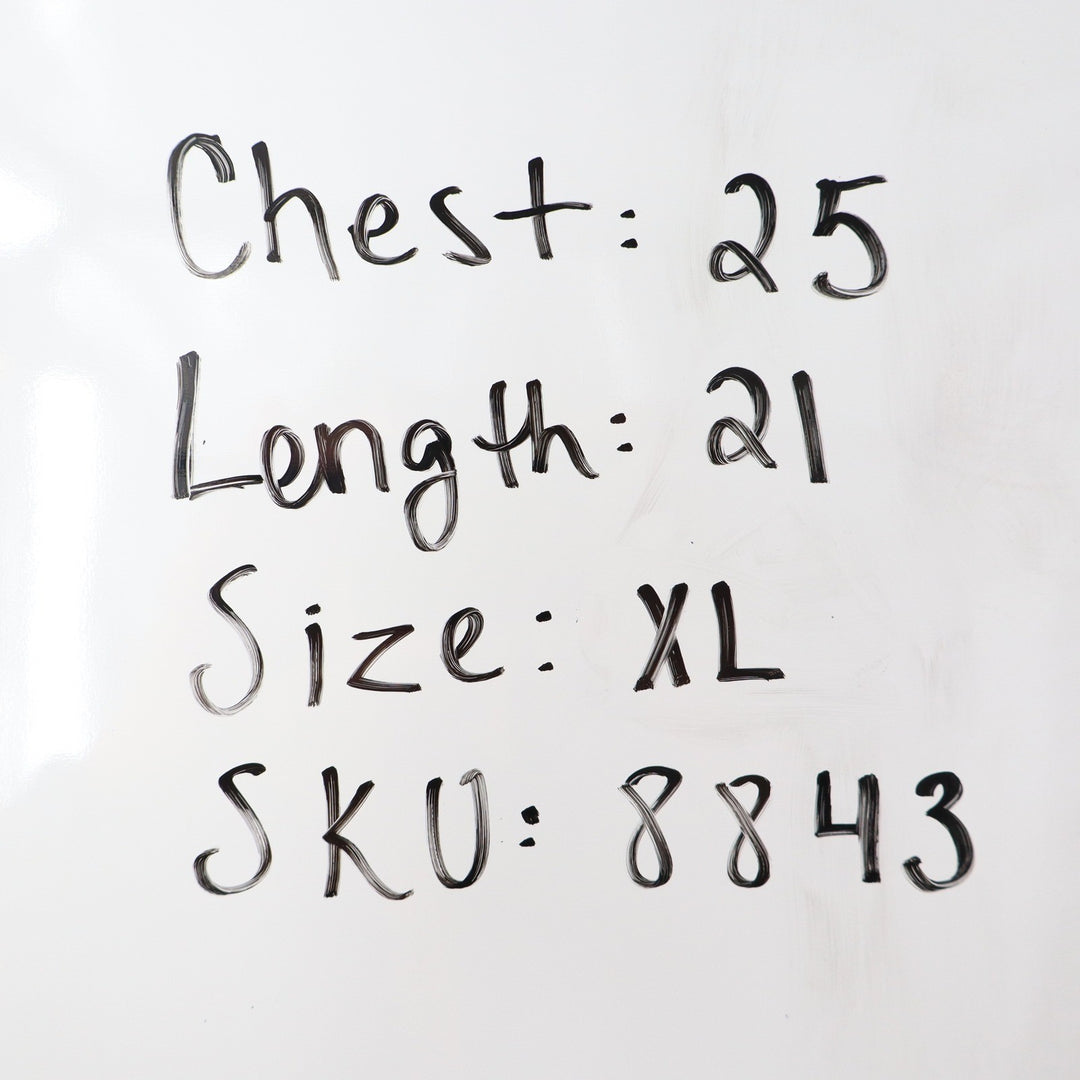 Chest: 25
Length: 21
Size: XL
SKU: 8843